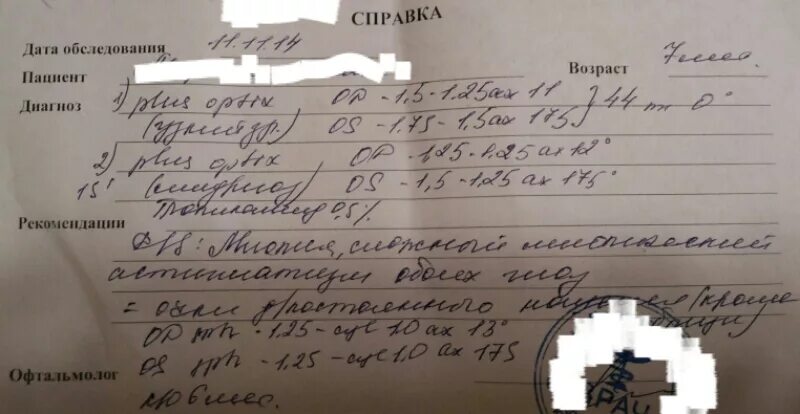 СПРАВКА
Дата обследования 11.11.14
Пациент
Возраст 7 мес.
Диагноз 1) plus optix OD -1,5 -1.25 ax 11 } 44 mm 0°
(узкий зр.) OS -1.75 -1,5 ax 175
2) plus optix OD -1,25 -1.25 ax 12°
15' (мидриаз) OS -1,5 -1.25 ax 175°
Тропикамид 0,5%
Рекомендации
DS: Миопия, сложный миопический
астигматизм обоих глаз
= очки д/постоянного ношения (кроме
OD sph -1.25 - cyl 1.0 ax 13°
OS sph -1.25 - cyl 1,0 ax 175
Офтальмолог
6 мес.
ВРАЧ